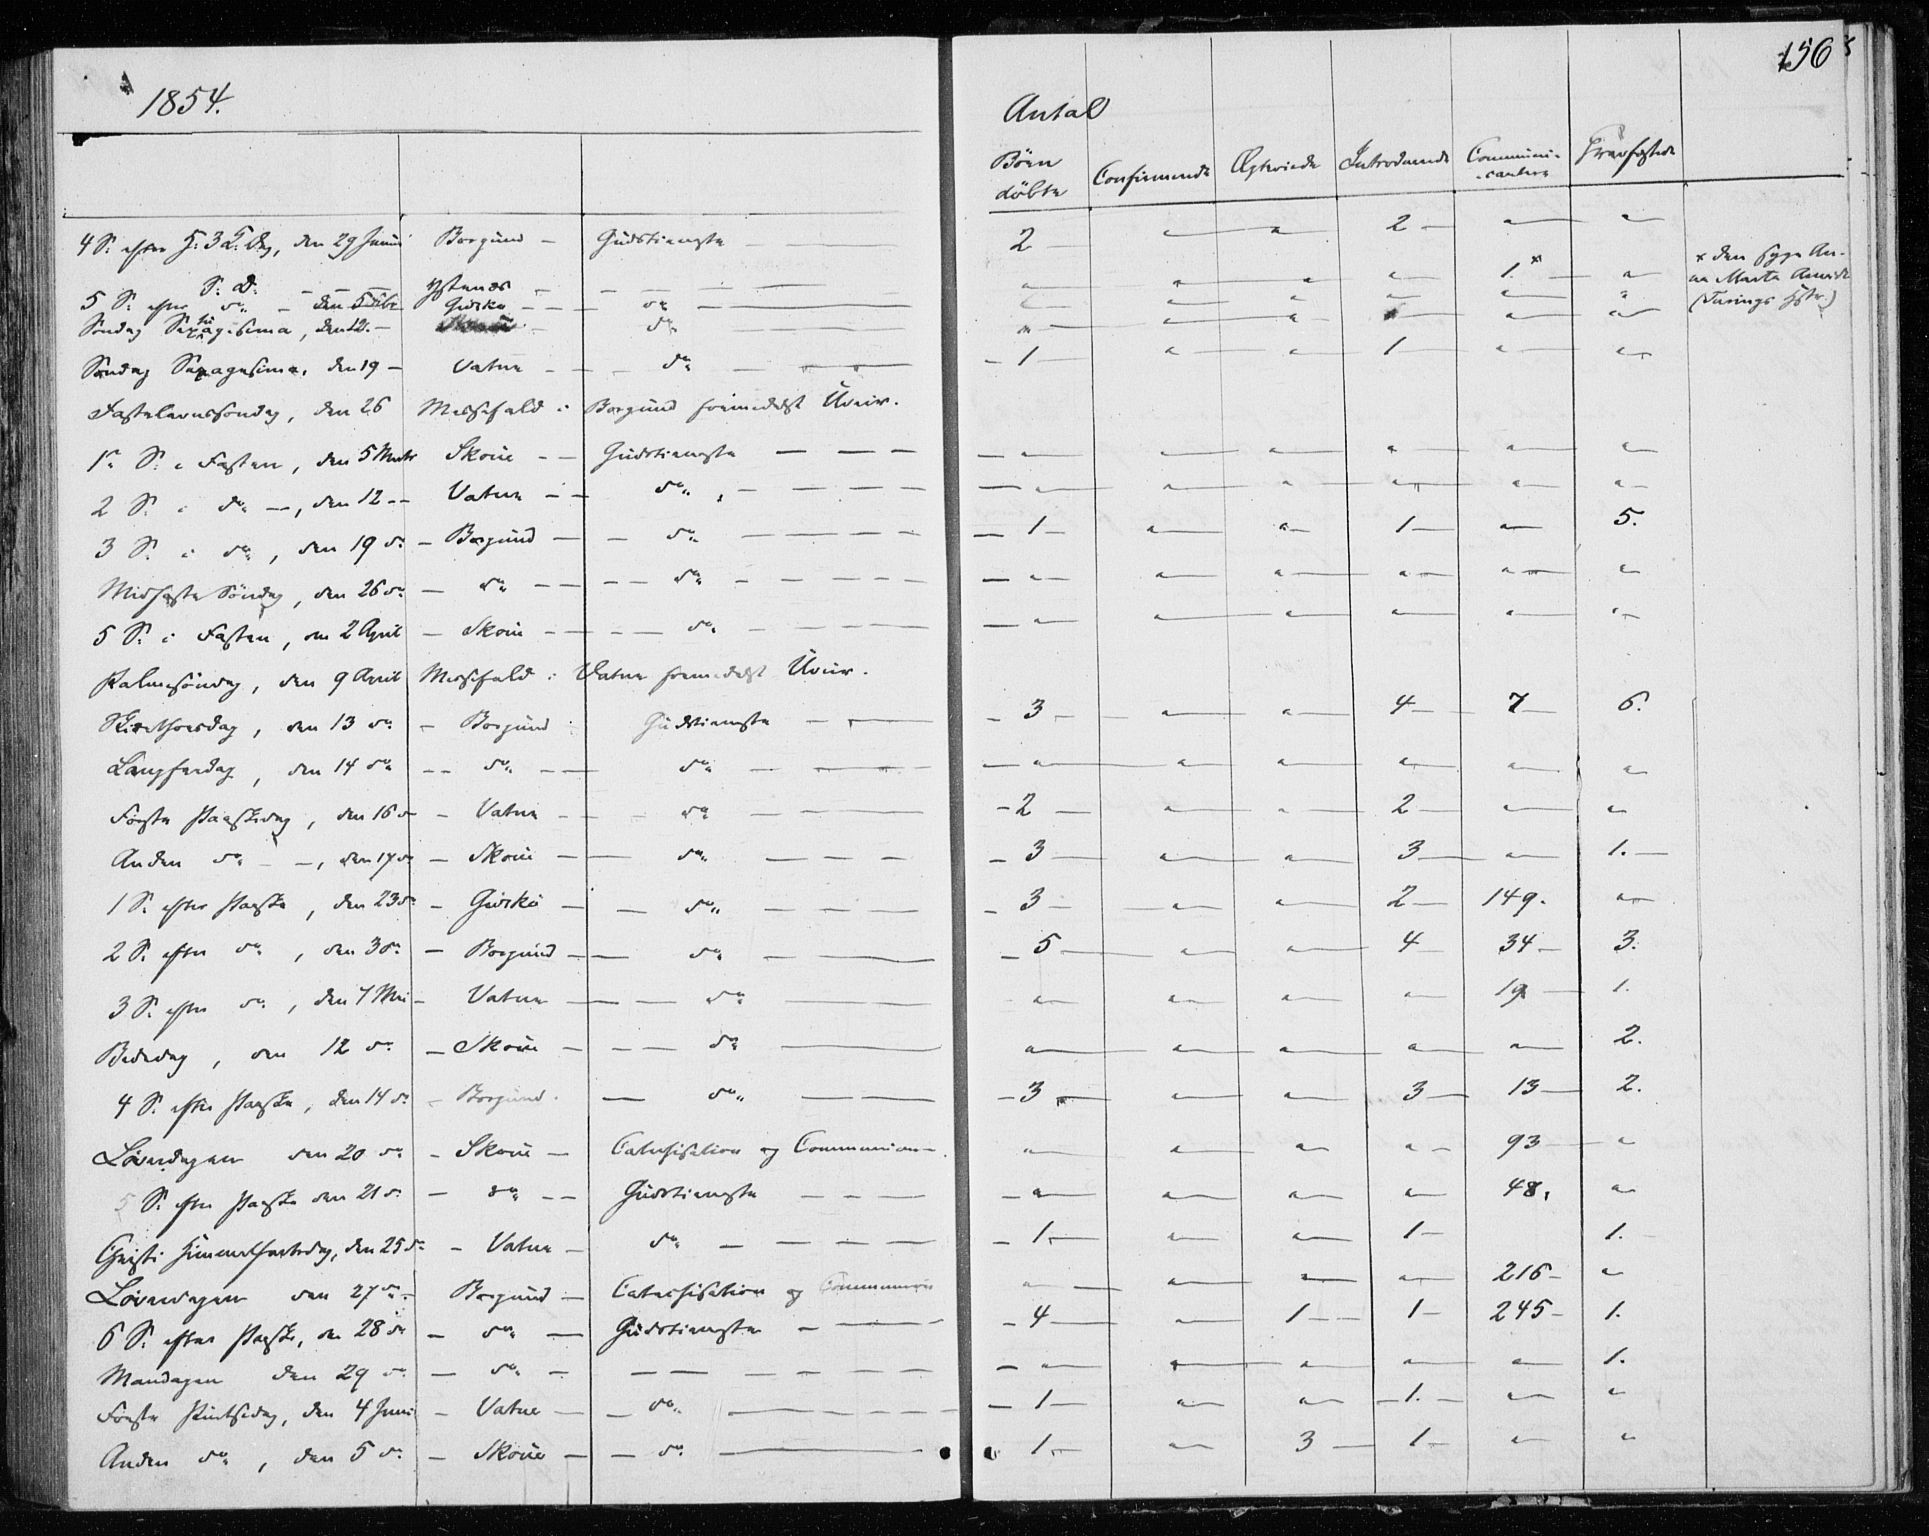 1854.
156
Antal
Börn döbte | Confirmerede | Ægteviede | Introducerede | Communicantere | Gravfæstede
4 S. efter H. 3 K. Dag, den 29 Januar | Borgund | Gudstieneste | 2 | " | " | 2 | " | "
S. D. | " | " | " | 1.x | " | x den syge Anna Marta
5 S. efter do | Giskø | do | " | " | " | " | " | "
Søndag Septuagesima, den 12. | do | " | " | " | " | " | "
Søndag Sexagesima, den 19 | Vatne | do | 1 | " | " | 1 | " | "
Fastelavnssøndag, den 26 | Messefald i Borgund formedelst Uveir.
1e S. i Fasten, den 5 Marts | Skoue | Gudstieneste | " | " | " | " | " | "
2 S. i do, den 12 | Vatne | do | " | " | " | " | " | "
3 S. i do, den 19 do | Borgund | do | 1 | " | " | 1 | " | 5.
Midfaste Söndag, den 26 do | do | do | " | " | " | " | " | "
5 S. i Fasten, den 2 April | Skoue | do | " | " | " | " | " | "
Palmesöndag, den 9 April | Messefald i Vatne formedelst Uveir.
Skiærthorsdag, den 13 do | Borgund | Gudstieneste | 3 | " | " | 4 | 7 | 6.
Langfredag, den 14 do | do | do | " | " | " | " | " | "
Første Paaskedag, den 16 do | Vatne | do | 2 | " | " | 2 | " | "
Anden do, den 17 do | Skoue | do | 3 | " | " | 3 | " | 1.
1 S. efter Paaske, den 23 do | Giskø | do | 3 | " | " | 2 | 149. | "
2 S. efter do, den 30 do | Borgund | do | 5 | " | " | 4 | 34 | 3.
3 S. efter do, den 7 Mai | Vatne | do | " | " | " | " | 19 | 1.
Bededag, den 12 do | Skoue | do | " | " | " | " | " | 2.
4 S. efter Paaske, den 14 do | Borgund | do | 3 | " | " | 3 | 13 | 2.
Løverdagen den 20 do | Skoue | Catechisation og Communion | " | " | " | " | 93 | "
5 S. efter Paaske den 21 do | do | Gudstieneste | " | " | " | " | 48. | "
Christi Himmelfartsdag, den 25 do | Vatne | do | 1 | " | " | 1 | 1.
Løverdagen den 27 do | Borgund | Catechisation og Communion | " | " | " | " | 216 | "
6 S. efter Paaske, den 28 do | do | Gudstieneste | 4 | " | 1 | 1 | 245 | 1.
Mandagen den 29 do | do | " | " | " | " | " | 1.
Første Pintsedag, den 4 Juni | Vatne | do | 1 | " | " | 1. | " | "
Anden do, den 5 do | Skoue | do | 1 | " | 3 | 1 | " | "